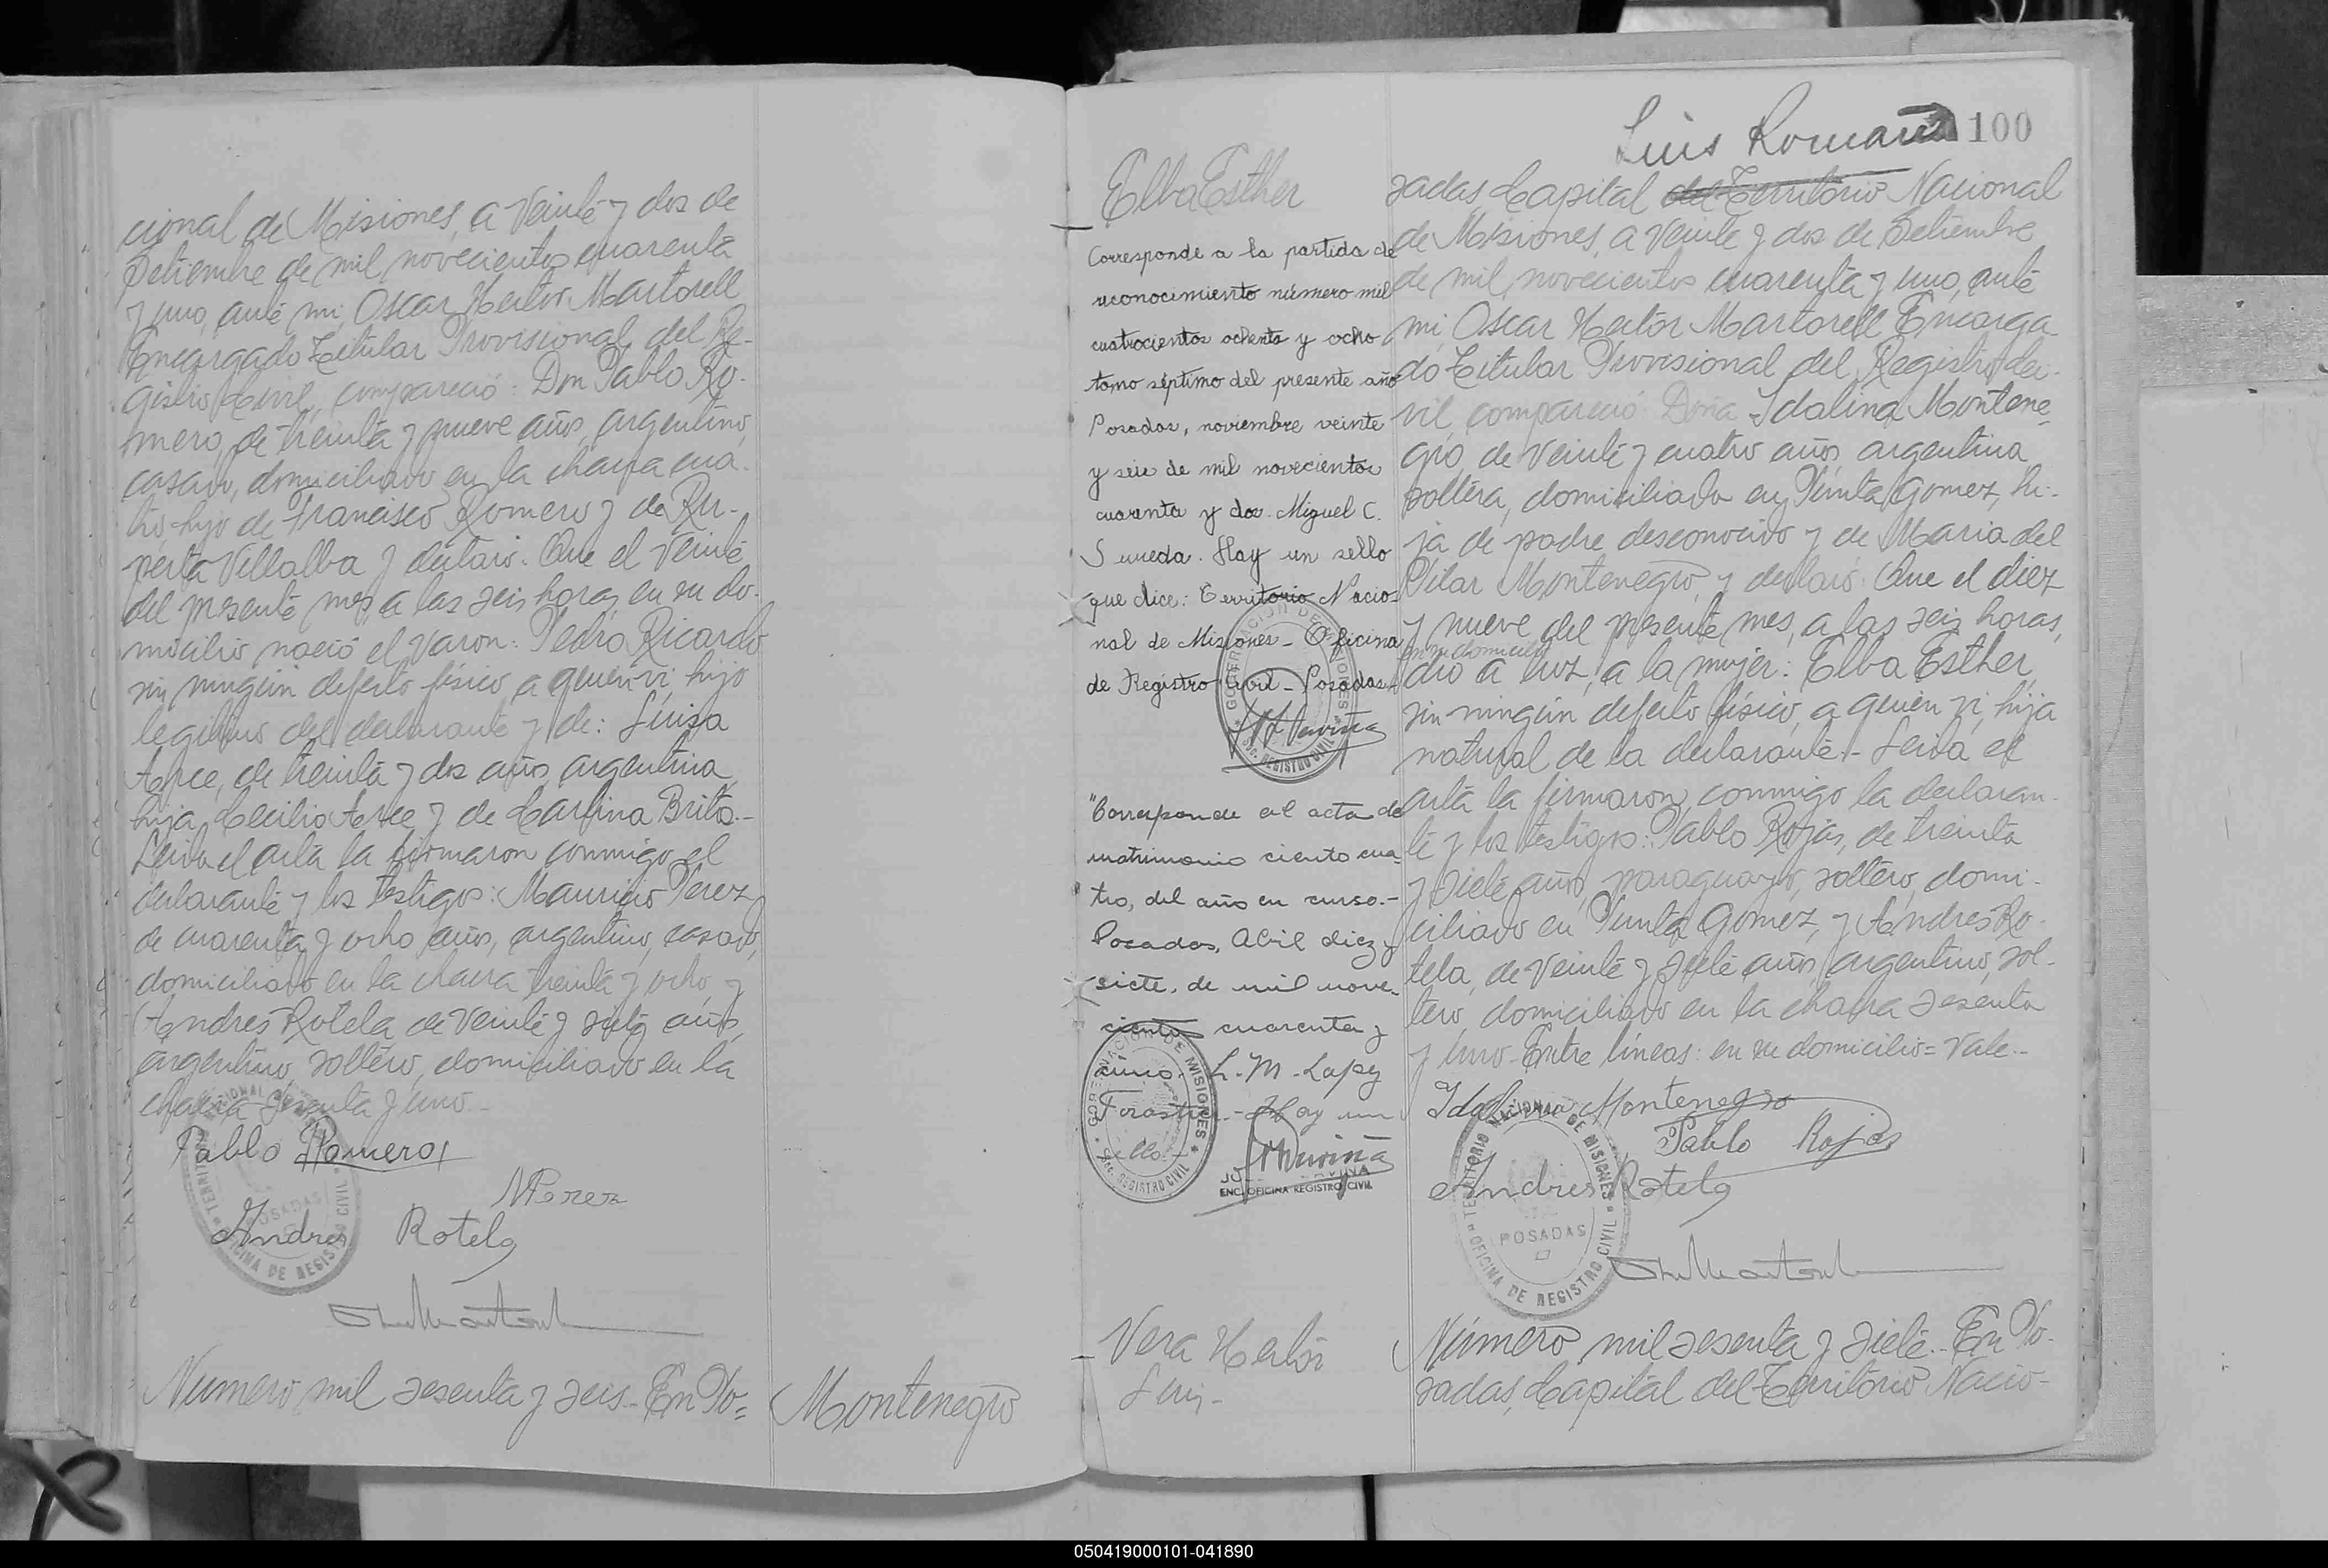 cional de Misiones, a veinte y dos de
Setiembre de mil novecientos cuarenta
y uno, ante mi, Oscar Hector Martorell
Encargado Titular Provisional del Re-
gistro Civil, compareció: Don Pablo Ro-
mero, de treinta y nueve años, argentino,
casado, domiciliado en la chacra cua-
tro, hijo de Francisco Romero y de Ru-
perta Villalba y declaró: Que el veinte
del presente mes, a las seis horas, en su do-
micilio nació el varon: Pedro Ricardo
sin ningún defecto físico, a quien vi, hijo
legitimo del declarante y de: Luisa
Arce, de treinta y dos años, argentina,
hija Cecilio Arce y de Brito.-
Leida el acta la firmaron conmigo el
declarante y los testigos: Mauricio Perez
de cuarenta y ocho años, argentino, casado,
domiciliado en la chacra treinta y ocho, y
Andres Rotela de veinte y siete años,
argentino, soltero, domiciliado en la
chacra sesenta y uno.-
Pablo Romero
MPerez
Andres Rotela
TERRITORIO NACIONAL DE MISIONES
POSADAS
OFICINA DE REGISTRO CIVIL
Número mil sesenta y seis.- En Po=
Montenegro
Luis Romano
100
Elba Esther
Corresponde a la partida de
reconocimiento número mil
cuatrocientos ochenta y ocho
tomo séptimo del presente año
Posadas, noviembre veinte
y seis de mil novecientos
cuarenta y dos. Miguel C.
Hay un sello
que dice: Territorio Nacio-
nal de Misiones - Oficina
de Registro Civil - Posadas.-
GOBERNACION DE MISIONES
Sec. REGISTRO CIVIL
"Corresponde al acta de
matrimonio ciento cua-
tro, del año en curso.-
Posadas, Abril diez y
siete, de mil nove-
cientos cuarenta y
L. M. Lopez
Hay un
GOBERNACION DE MISIONES
Sec. REGISTRO CIVIL
ENC. OFICINA REGISTRO CIVIL
sadas, Capital del Territorio Nacional
de Misiones, a veinte y dos de Setiembre
de mil novecientos cuarenta y uno, ante
mi, Oscar Hector Martorell Encarga
do Titular Provisional del Registro Ci-
vil, compareció: Doña Idalina Montene
gro, de veinte y cuatro años, argentina
soltera, domiciliada en Punta Gomez, hi-
ja de padre desconocido y de Maria del
Pilar Montenegro, y declaró: Que el diez
y nueve del presente mes, a las seis horas,
en su domicilio
dió a luz, a la mujer: Elba Esther,
sin ningún defecto físico, a quien vi, hija
natural de la declarante.- Leida el
acta la firmaron conmigo la declaran-
te y los testigos: Pablo Rojas, de treinta
y siete años, paraguayo, soltero, domi-
ciliado en Punta Gomez, y Andres Ro-
tela, de veinte y siete años, argentino, sol-
tero, domiciliado en la chacra sesenta
y uno.- Entre líneas: en su domicilio= Vale.-
Idalina Montenegro
Pablo Rojas
Andres Rotela
TERRITORIO NACIONAL DE MISIONES
POSADAS
OFICINA DE REGISTRO CIVIL
Vera Hector
Luis.-
Número mil sesenta y siete.- En Po-
sadas, Capital del Territorio Nacio-
050419000101-041890